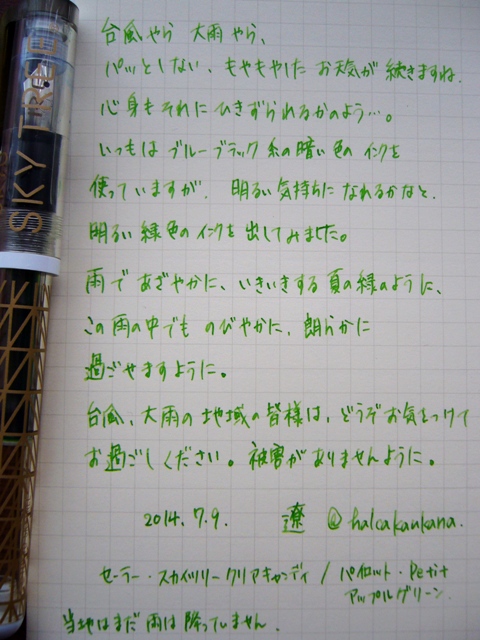 SKY TREE
台風やら 大雨やら、
パッとしない、もやもやした お天気が 続きますね。
心身もそれにひきずられるかのよう…。
いつもは ブルーブラック系の暗い色の インクを
使っていますが、明るい気持ちに なれるかなと、
明るい緑色のインクを出してみました。
雨で あざやかに、いきいきする夏の緑のように、
この雨の中でも のびやかに、朗らかに
過ごせますように。
台風、大雨の地域の皆様は、どうぞお気をつけて
お過ごしください。被害がありませんように。
2014.7.9. 遼 @halcakaukana.
セーラー・スカイツリークリアキャンディ / パイロット・Petit
アップルグリーン.
当地はまだ雨は降っていません。